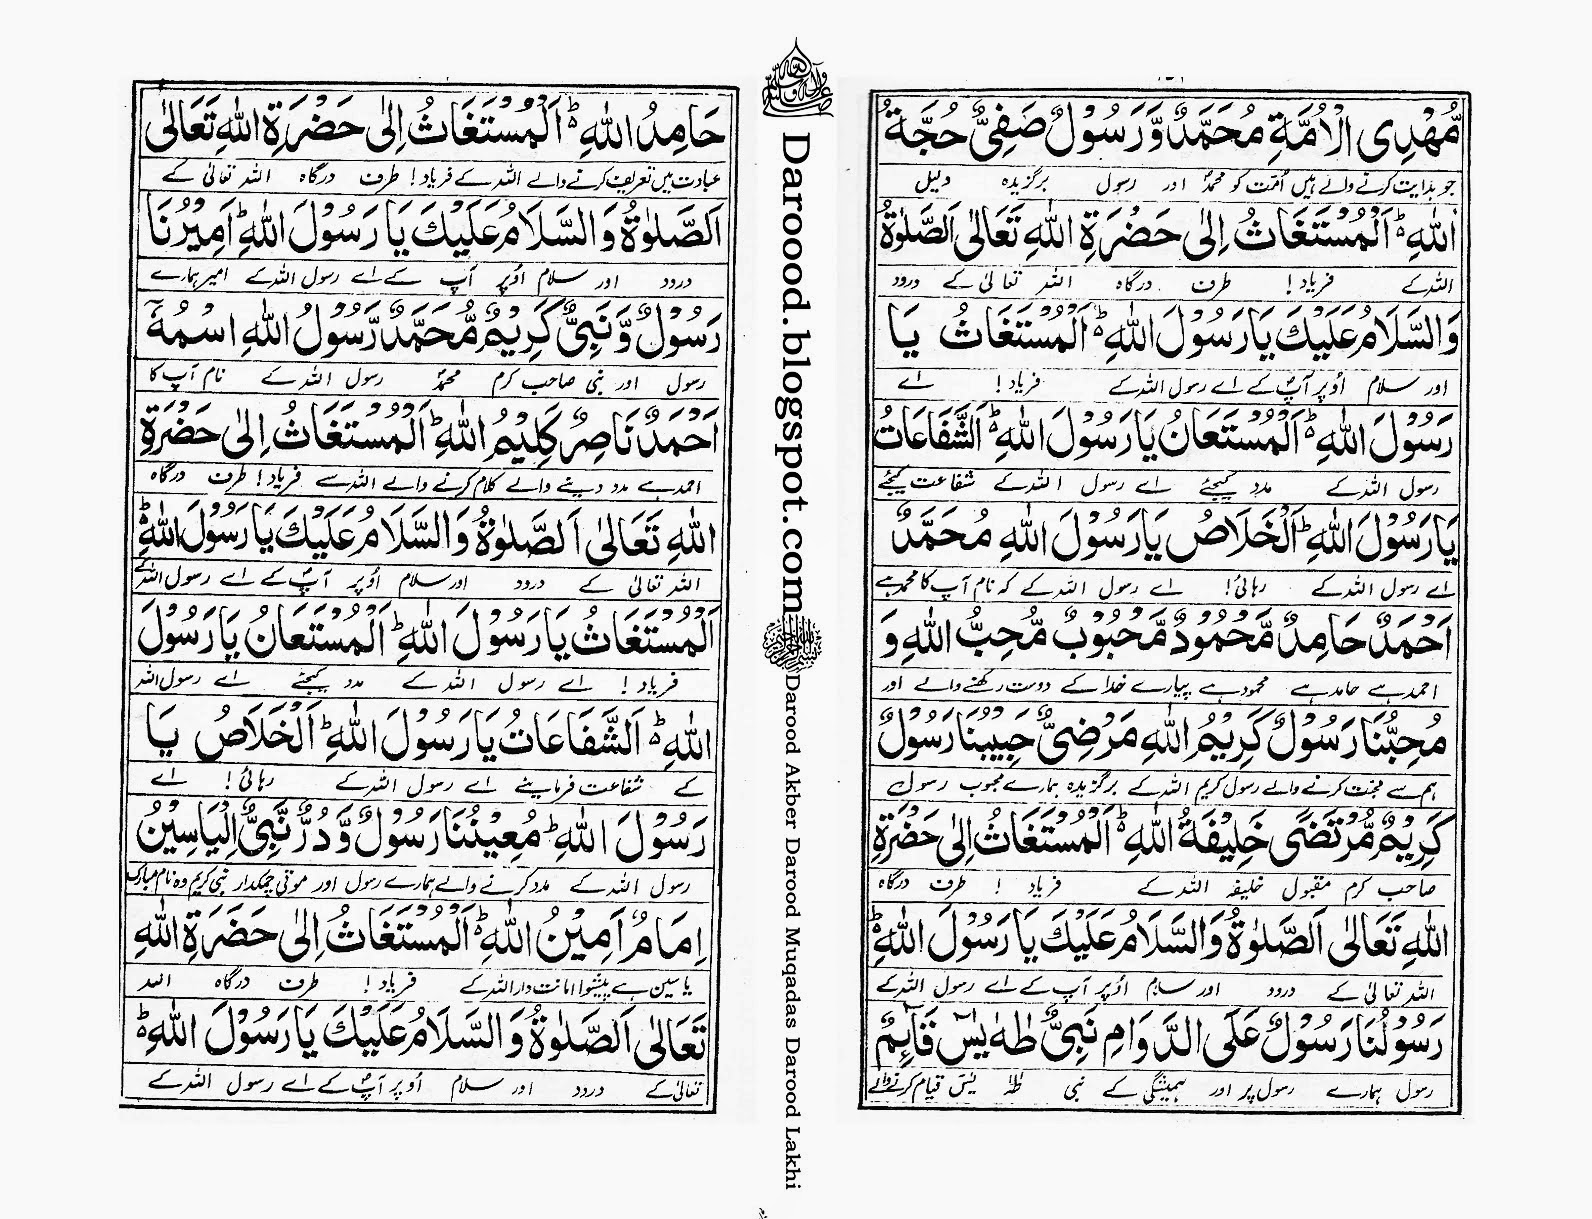 مُّهْدِی الْاُمَّةِ مُحَمَّدٌ وَّرَسُوْلٌ صَفِیٌّ حُجَّةُ
جو ہدایت کرنے والے ہیں اُمت کو محمدؐ اور رسول برگزیدہ دلیل
اللّٰهِ ؕ اَلْمُسْتَغَاثُ اِلٰی حَضْرَةِ اللّٰهِ تَعَالٰی اَلصَّلٰوةُ
اللہ کے فریاد! طرف درگاہ اللہ تعالیٰ کے درود
وَالسَّلَامُ عَلَیْكَ یَا رَسُوْلَ اللّٰهِ ؕ اَلْمُسْتَغَاثُ یَا
اور سلام اُوپر آپؐ کے اے رسول اللہ کے فریاد! اے
رَسُوْلَ اللّٰهِ ؕ اَلْمُسْتَعَانُ یَا رَسُوْلَ اللّٰهِ ؕ اَلشَّفَاعَاتُ
رسول اللہ کے مدد کیجئے اے رسول اللہ کے شفاعت کیجئے
یَا رَسُوْلَ اللّٰهِ ؕ اَلْخَلَاصُ یَا رَسُوْلَ اللّٰهِ مُحَمَّدٌ
اے رسول اللہ کے رہائی! اے رسول اللہ کے کہ نام آپ کا محمد ہے
اَحْمَدٌ حَامِدٌ مَّحْمُوْدٌ مَّحْبُوْبٌ مُّحِبُّ اللّٰهِ وَ
احمد ہے حامد ہے محمود ہے پیارے خدا کے دوست رکھنے والے اور
مُحِبُّنَا رَسُوْلٌ كَرِیْمُ اللّٰهِ مَرْضِیٌّ حَبِیْبُنَا رَسُوْلٌ
ہم سے محبت کرنے والے رسول کریم اللہ کے برگزیدہ ہمارے محبوب رسول
كَرِیْمٌ مُّرْتَضٰی خَلِیْفَةُ اللّٰهِ ؕ اَلْمُسْتَغَاثُ اِلٰی حَضْرَةِ
صاحب کرم مقبول خلیفہ اللہ کے فریاد ! طرف درگاہ
اللّٰهِ تَعَالٰی اَلصَّلٰوةُ وَالسَّلَامُ عَلَیْكَ یَا رَسُوْلَ اللّٰهِ ؕ
اللہ تعالیٰ کے درود اور سلام اُوپر آپ کے اے رسول اللہ کے
رَسُوْلُنَا رَسُوْلٌ عَلَی الدَّوَامِ نَبِیٌّ طٰهٰ یٰسٓ قَآئِمٌ
رسول ہمارے رسول پر اور ہمیشگی کے نبی طٰہٰ یٰس قیام کرنے والے
حَامِدُ اللّٰهِ ؕ اَلْمُسْتَغَاثُ اِلٰی حَضْرَةِ اللّٰهِ تَعَالٰی
عبادت میں تعریف کرنے والے اللہ کے فریاد! طرف درگاہ اللہ تعالیٰ کے
اَلصَّلٰوةُ وَالسَّلَامُ عَلَیْكَ یَا رَسُوْلَ اللّٰهِ اَمِیْرُنَا
درود اور سلام اُوپر آپ کے اے رسول اللہ کے امیر ہمارے
رَسُوْلٌ وَّنَبِیٌّ كَرِیْمٌ مُّحَمَّدٌ رَّسُوْلُ اللّٰهِ اسْمُهٗٓ
رسول اور نبی صاحب کرم محمدؐ رسول اللہ کے نام آپ کا
اَحْمَدُ نَاصِرٌ كَلِیْمُ اللّٰهِ ؕ اَلْمُسْتَغَاثُ اِلٰی حَضْرَةِ
احمد ہے مدد دینے والے کلام کرنے والے اللہ سے فریاد! طرف درگاہ
اللّٰهِ تَعَالٰی اَلصَّلٰوةُ وَالسَّلَامُ عَلَیْكَ یَا رَسُوْلَ اللّٰهِ ؕ
اللہ تعالیٰ کے درود اور سلام اُوپر آپؐ کے اے رسول اللہ کے
اَلْمُسْتَغَاثُ یَا رَسُوْلَ اللّٰهِ ؕ اَلْمُسْتَعَانُ یَا رَسُوْلَ
فریاد! اے رسول اللہ کے مدد کیجئے اے رسول اللہ
اللّٰهِ ؕ اَلشَّفَاعَاتُ یَا رَسُوْلَ اللّٰهِ ؕ اَلْخَلَاصُ یَا
کے شفاعت فرمایئے اے رسول اللہ کے رہائی! اے
رَسُوْلَ اللّٰهِ ؕ مُعِیْنُنَا رَسُوْلٌ وَّدُرٌّ نَّبِیٌّ اِلْیَاسِیْنُ
رسول اللہ کے مدد کرنے والے ہمارے رسول اور موتی چمکدار نبی کریم وہ نام مبارک
اِمَامٌ اَمِیْنُ اللّٰهِ ؕ اَلْمُسْتَغَاثُ اِلٰی حَضَرَةِ اللّٰهِ
یاسین ہے پیشوا امانت دار اللہ کے فریاد! طرف درگاہ اللہ
تَعَالٰی اَلصَّلٰوةُ وَالسَّلَامُ عَلَیْكَ یَا رَسُوْلَ اللّٰهِ ؕ
تعالیٰ کے درود اور سلام اُوپر آپؐ کے اے رسول اللہ کے
Daroood.blogspot.com
Darood Akber Darood Muqadas Darood Lakhi